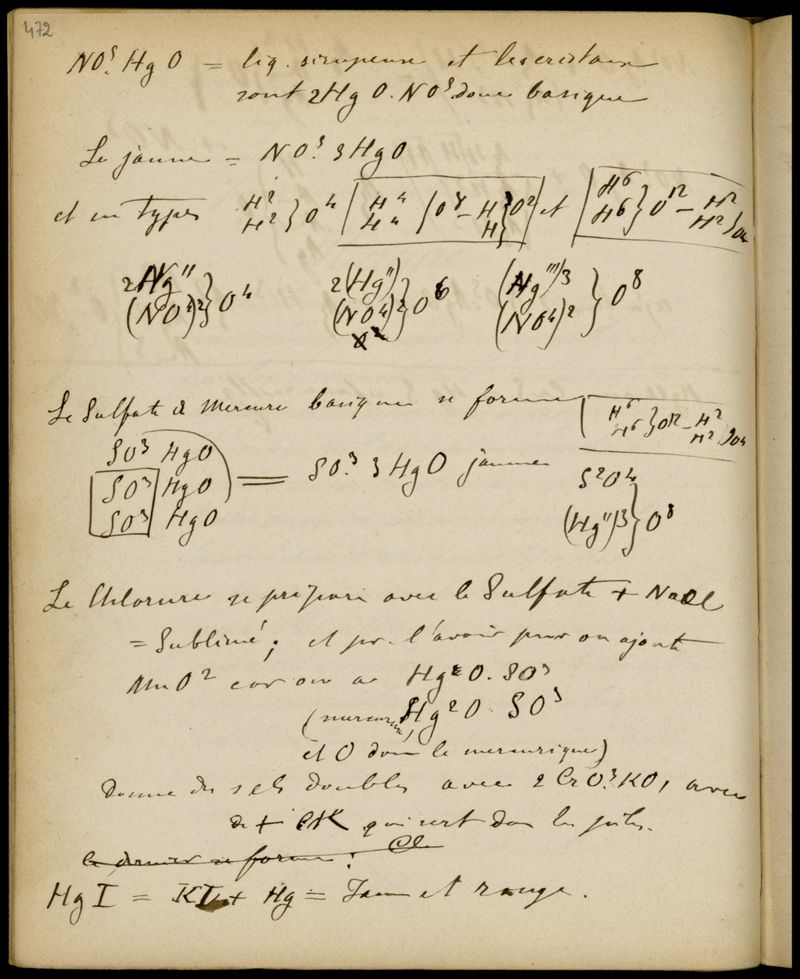 472
NO⁵. HgO = liq. sirupeuse et les cristaux
sont 2HgO. NO⁵ donc basique
Le jaune = NO⁵. 3HgO
et en types H² H² } O⁴ | H⁴ H⁴ } O⁸ – H H } O² et | H⁶ H⁶ } O¹² – H² H² } O⁴
2Hg'' (NO⁴)² } O⁴ 2(Hg'') (NO⁴)² } O⁶ (Hg'')3 (NO⁴)2 } O⁸
Le Sulfate de Mercure basique se forme | H⁶ H⁶ } O¹² – H² H² } O⁴
SO³ HgO
SO³ HgO = SO³. 3HgO jaune S²O⁴
SO³ HgO (Hg'')3 } O⁸
Le Chlorure se prépare avec le Sulfate + NaCl
= Sublimé; et pr. l'avoir pur on ajoute
MnO² car on a Hg²O. SO³
(mercureux, Hg²O. SO³
et O donne le mercurique)
Donne des sels doubles avec 2CrO³. KO, avec
de + ClK qui sert dans les piles.
le dernier se forme : Cl
HgI = KI + Hg = Jaune et rouge.